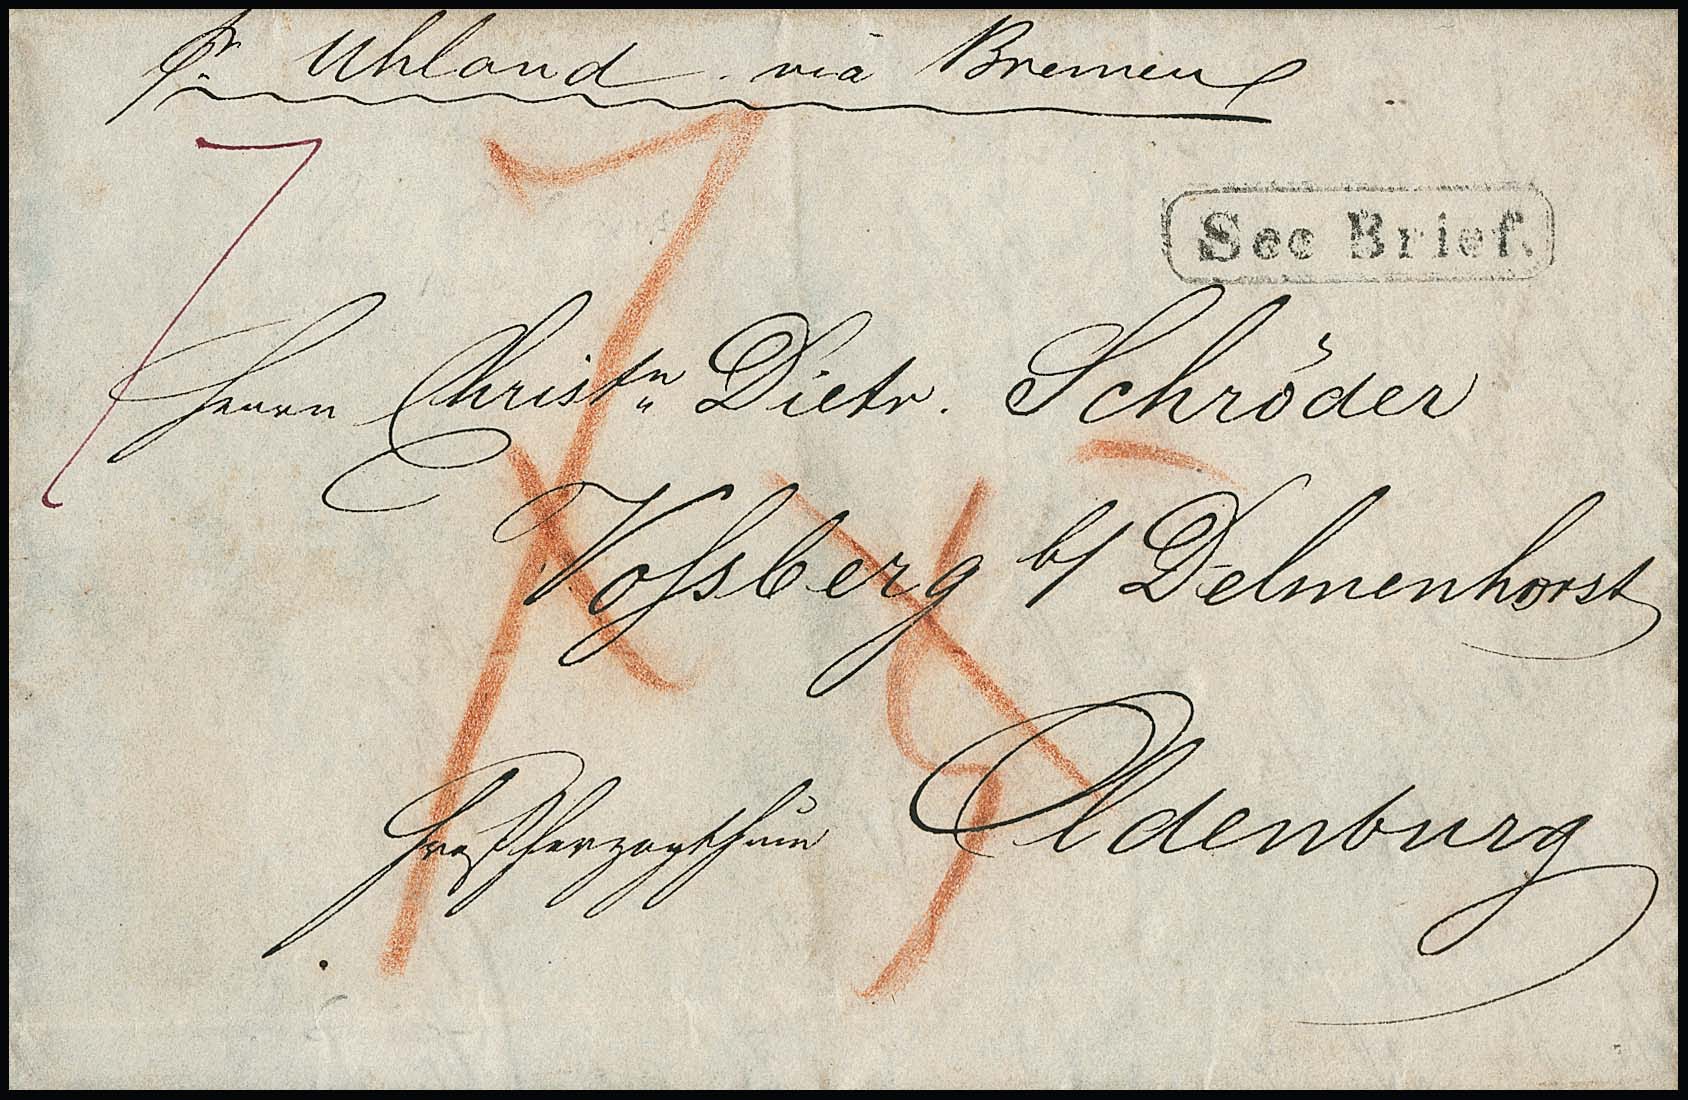 pr. Uhland via Bremen
7 7
See Brief.
Herrn Christn Dietr. Schröder
Vossberg b/ Delmenhorst
Großherzogthum Oldenburg